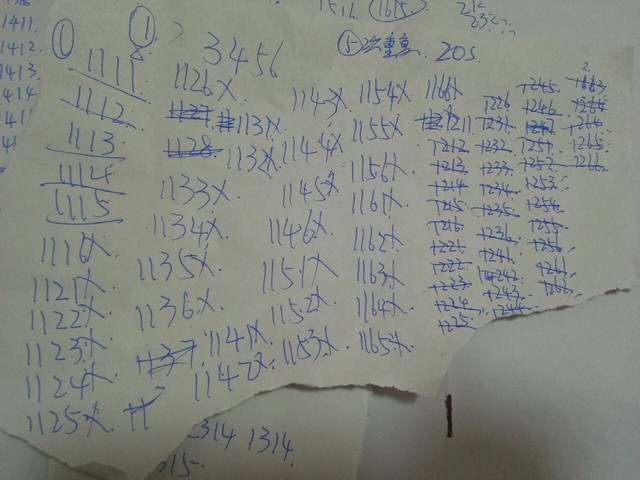 1411.
1412.
1413.
414
41
①
①
3456
⑤次重复. 205.
1615
1111.
1112.
1113.
1114.
1115.
1116x
1121x
1122x
1123x
1124x
1125x.
1126x
1127
1128.
1131x
1132x
1133x
1134x
1135x
1136x.
1137
1141x
1142x
1143x
1144x
1145x
1146x.
1151x
1152x.
1153x.
1154x
1155x
1156x
1161x
1162x
1163x
1164x.
1165x.
1166x
1211.
1212.
1213.
1214
1215
1216
1221
1222
1223
1224
1225
1226
1231
1232
1233
1234
1235
1236
1241
1242
1243
1244
1245.
1246
1251
1252
1253
1254
1255
1256
1261
1262
1263
1264
1265
1266
2314 1314.
315.